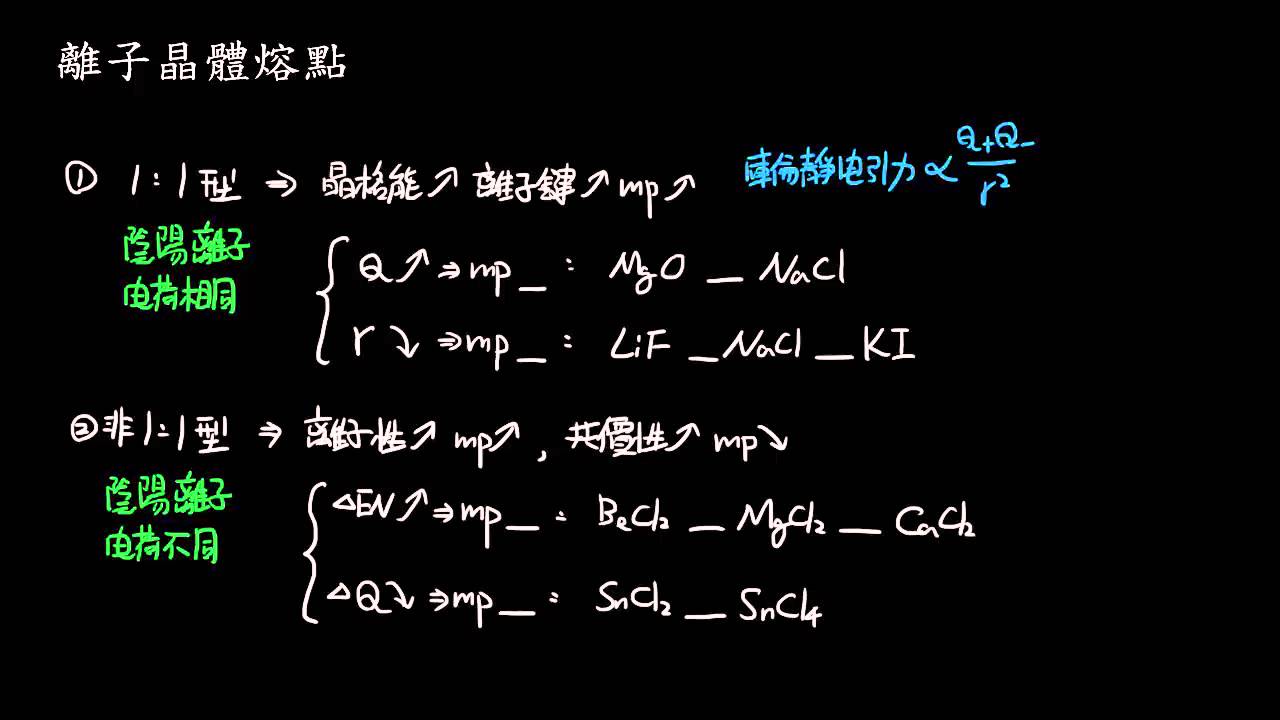 離子晶體熔點
① 1:1型 ⇒ 晶格能↗ 離子鍵↗ mp↗ 庫侖靜电引力 ∝ Q+Q-/r²
陰陽離子
电荷相同
Q↗ ⇒ mp __ : MgO __ NaCl
r↘ ⇒ mp __ : LiF __ NaCl __ KI
② 非1:1型 ⇒ 離子性↗ mp↗ , 共價性↗ mp↘
陰陽離子
电荷不同
△EN↗ ⇒ mp __ : BeCl₂ __ MgCl₂ __ CaCl₂
△Q↘ ⇒ mp __ : SnCl₂ __ SnCl₄